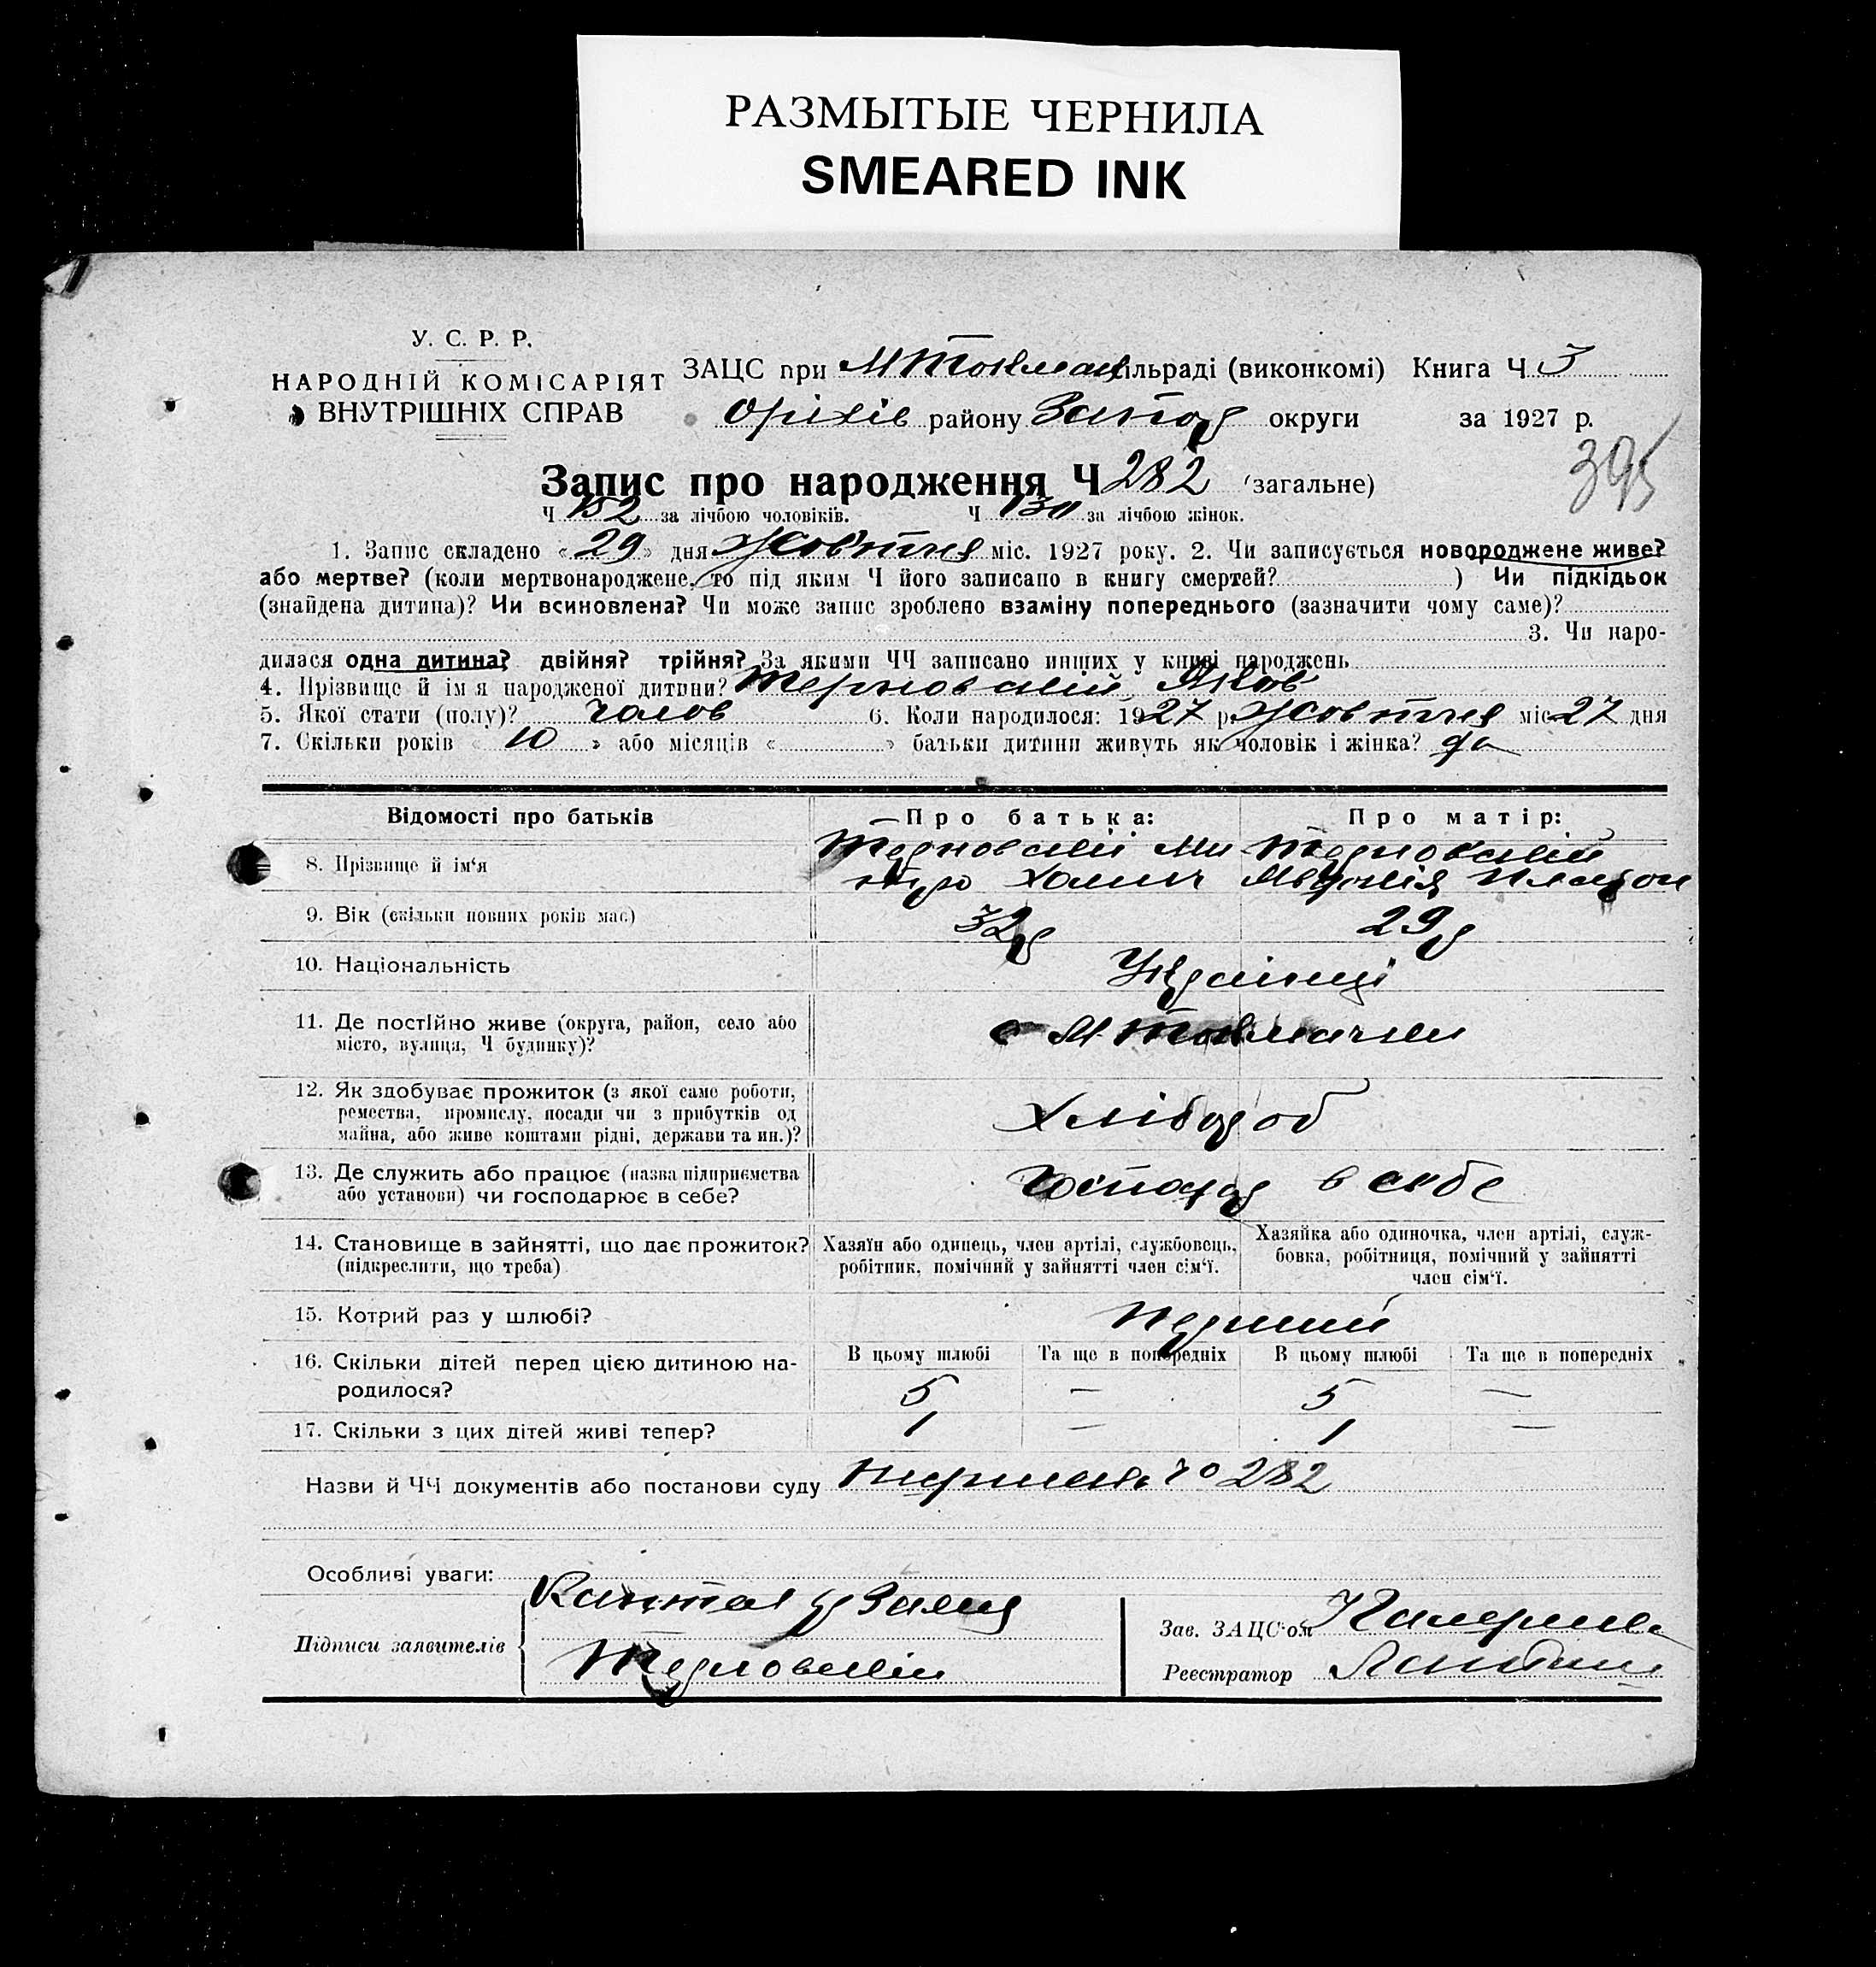 РАЗМЫТЫЕ ЧЕРНИЛА
SMEARED INK
У. С. Р. Р.
НАРОДНІЙ КОМІСАРІЯТ
ВНУТРІШНІХ СПРАВ
ЗАЦС при М Токмач сільраді (виконкомі) Книга Ч 3
Оріхів району Запор округи за 1927 р.
395
Запис про народження Ч 282 (загальне)
Ч 152 за лічбою чоловіків. Ч 130 за лічбою жінок.
1. Запис складено «29» дня Жовтня міс. 1927 року. 2. Чи записується новороджене живе?
або мертве? (коли мертвонароджене, то під яким Ч його записано в книгу смертей? ) Чи підкідьок
(знайдена дитина)? Чи всиновлена? Чи може запис зроблено взаміну попереднього (зазначити чому саме)?
3. Чи наро-
дилася одна дитина? двійня? трійня? За якими ЧЧ записано инших у книзі народжень
4. Прізвище й ім'я народженої дитини? Терновський Яков
5. Якої стати (полу)? чолов 6. Коли народилося: 1927 р. Жовтня міс 27 дня
7. Скільки років «10» або місяців « » батьки дитини живуть як чоловік і жінка? да
Відомості про батьків Про батька: Про матір:
8. Прізвище й ім'я Терновський Терновский
9. Вік (скільки повних років має) 32р 29р
10. Національність Українці
11. Де постійно живе (округа, район, село або
місто, вулиця, Ч будинку)? с М. Токмачки
12. Як здобуває прожиток (з якої саме роботи,
ремества, промислу, посади чи з прибутків од
майна, або живе коштами рідні, держави та ин.)? Хлібороб
13. Де служить або працює (назва підприємства
або установи) чи господарює в себе? Господар в себе
14. Становище в зайнятті, що дає прожиток?
(підкреслити, що треба)
Хазяїн або одинець, член артілі, службовець,
робітник, помічний у зайнятті член сім'ї.
Хазяйка або одиночка, член артілі, служ-
бовка, робітниця, помічний у зайнятті
член сім'ї.
15. Котрий раз у шлюбі? Перший
16. Скільки дітей перед цією дитиною на-
родилося?
В цьому шлюбі Та ще в попередніх В цьому шлюбі Та ще в попередніх
5 — 5 —
17. Скільки з цих дітей живі тепер? 1 — 1 —
Назви й ЧЧ документів або постанови суду 282
Особливі уваги:
Підписи заявителів
Терновский
Зав. ЗАЦС'ом
Реєстратор